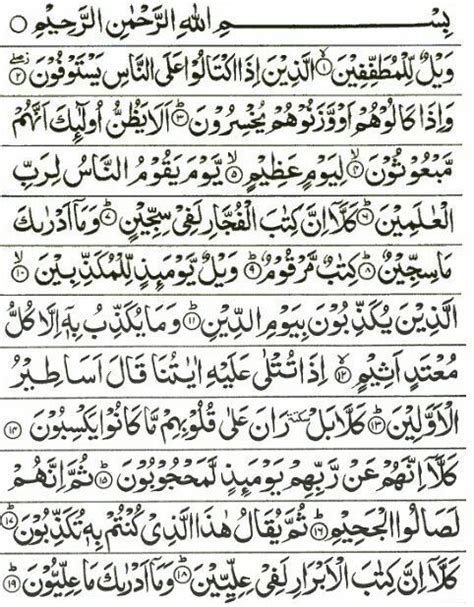 بِسْمِ اللهِ الرَّحْمٰنِ الرَّحِيْمِ ○
وَيْلٌ لِّلْمُطَفِّفِيْنَ ۙ﴿۱﴾ الَّذِيْنَ اِذَا اكْتَالُوْا عَلَى النَّاسِ يَسْتَوْفُوْنَ ﴿۲﴾
وَاِذَا كَالُوْهُمْ اَوْ وَّزَنُوْهُمْ يُخْسِرُوْنَ ﴿۳﴾ اَلَا يَظُنُّ اُولٰٓئِكَ اَنَّهُمْ
مَّبْعُوْثُوْنَ ۙ﴿۴﴾ لِيَوْمٍ عَظِيْمٍ ۙ﴿۵﴾ يَّوْمَ يَقُوْمُ النَّاسُ لِرَبِّ
الْعٰلَمِيْنَ ﴿۶﴾ كَلَّاۤ اِنَّ كِتٰبَ الْفُجَّارِ لَفِيْ سِجِّيْنٍ ﴿۷﴾ وَمَاۤ اَدْرٰىكَ
مَا سِجِّيْنٌ ﴿۸﴾ كِتٰبٌ مَّرْقُوْمٌ ﴿۹﴾ وَيْلٌ يَّوْمَئِذٍ لِّلْمُكَذِّبِيْنَ ۙ﴿۱۰﴾
الَّذِيْنَ يُكَذِّبُوْنَ بِيَوْمِ الدِّيْنِ ﴿۱۱﴾ وَمَا يُكَذِّبُ بِهٖۤ اِلَّا كُلُّ
مُعْتَدٍ اَثِيْمٍ ۙ﴿۱۲﴾ اِذَا تُتْلٰى عَلَيْهِ اٰيٰتُنَا قَالَ اَسَاطِيْرُ
الْاَوَّلِيْنَ ﴿۱۳﴾ كَلَّا بَلْ سكتة رَانَ عَلٰى قُلُوْبِهِمْ مَّا كَانُوْا يَكْسِبُوْنَ ﴿۱۴﴾
كَلَّاۤ اِنَّهُمْ عَنْ رَّبِّهِمْ يَوْمَئِذٍ لَّمَحْجُوْبُوْنَ ﴿۱۵﴾ ثُمَّ اِنَّهُمْ
لَصَالُوا الْجَحِيْمِ ﴿۱۶﴾ ثُمَّ يُقَالُ هٰذَا الَّذِيْ كُنْتُمْ بِهٖ تُكَذِّبُوْنَ ﴿۱۷﴾
كَلَّاۤ اِنَّ كِتٰبَ الْاَبْرَارِ لَفِيْ عِلِّيِّيْنَ ﴿۱۸﴾ وَمَاۤ اَدْرٰىكَ مَا عِلِّيُّوْنَ ﴿۱۹﴾